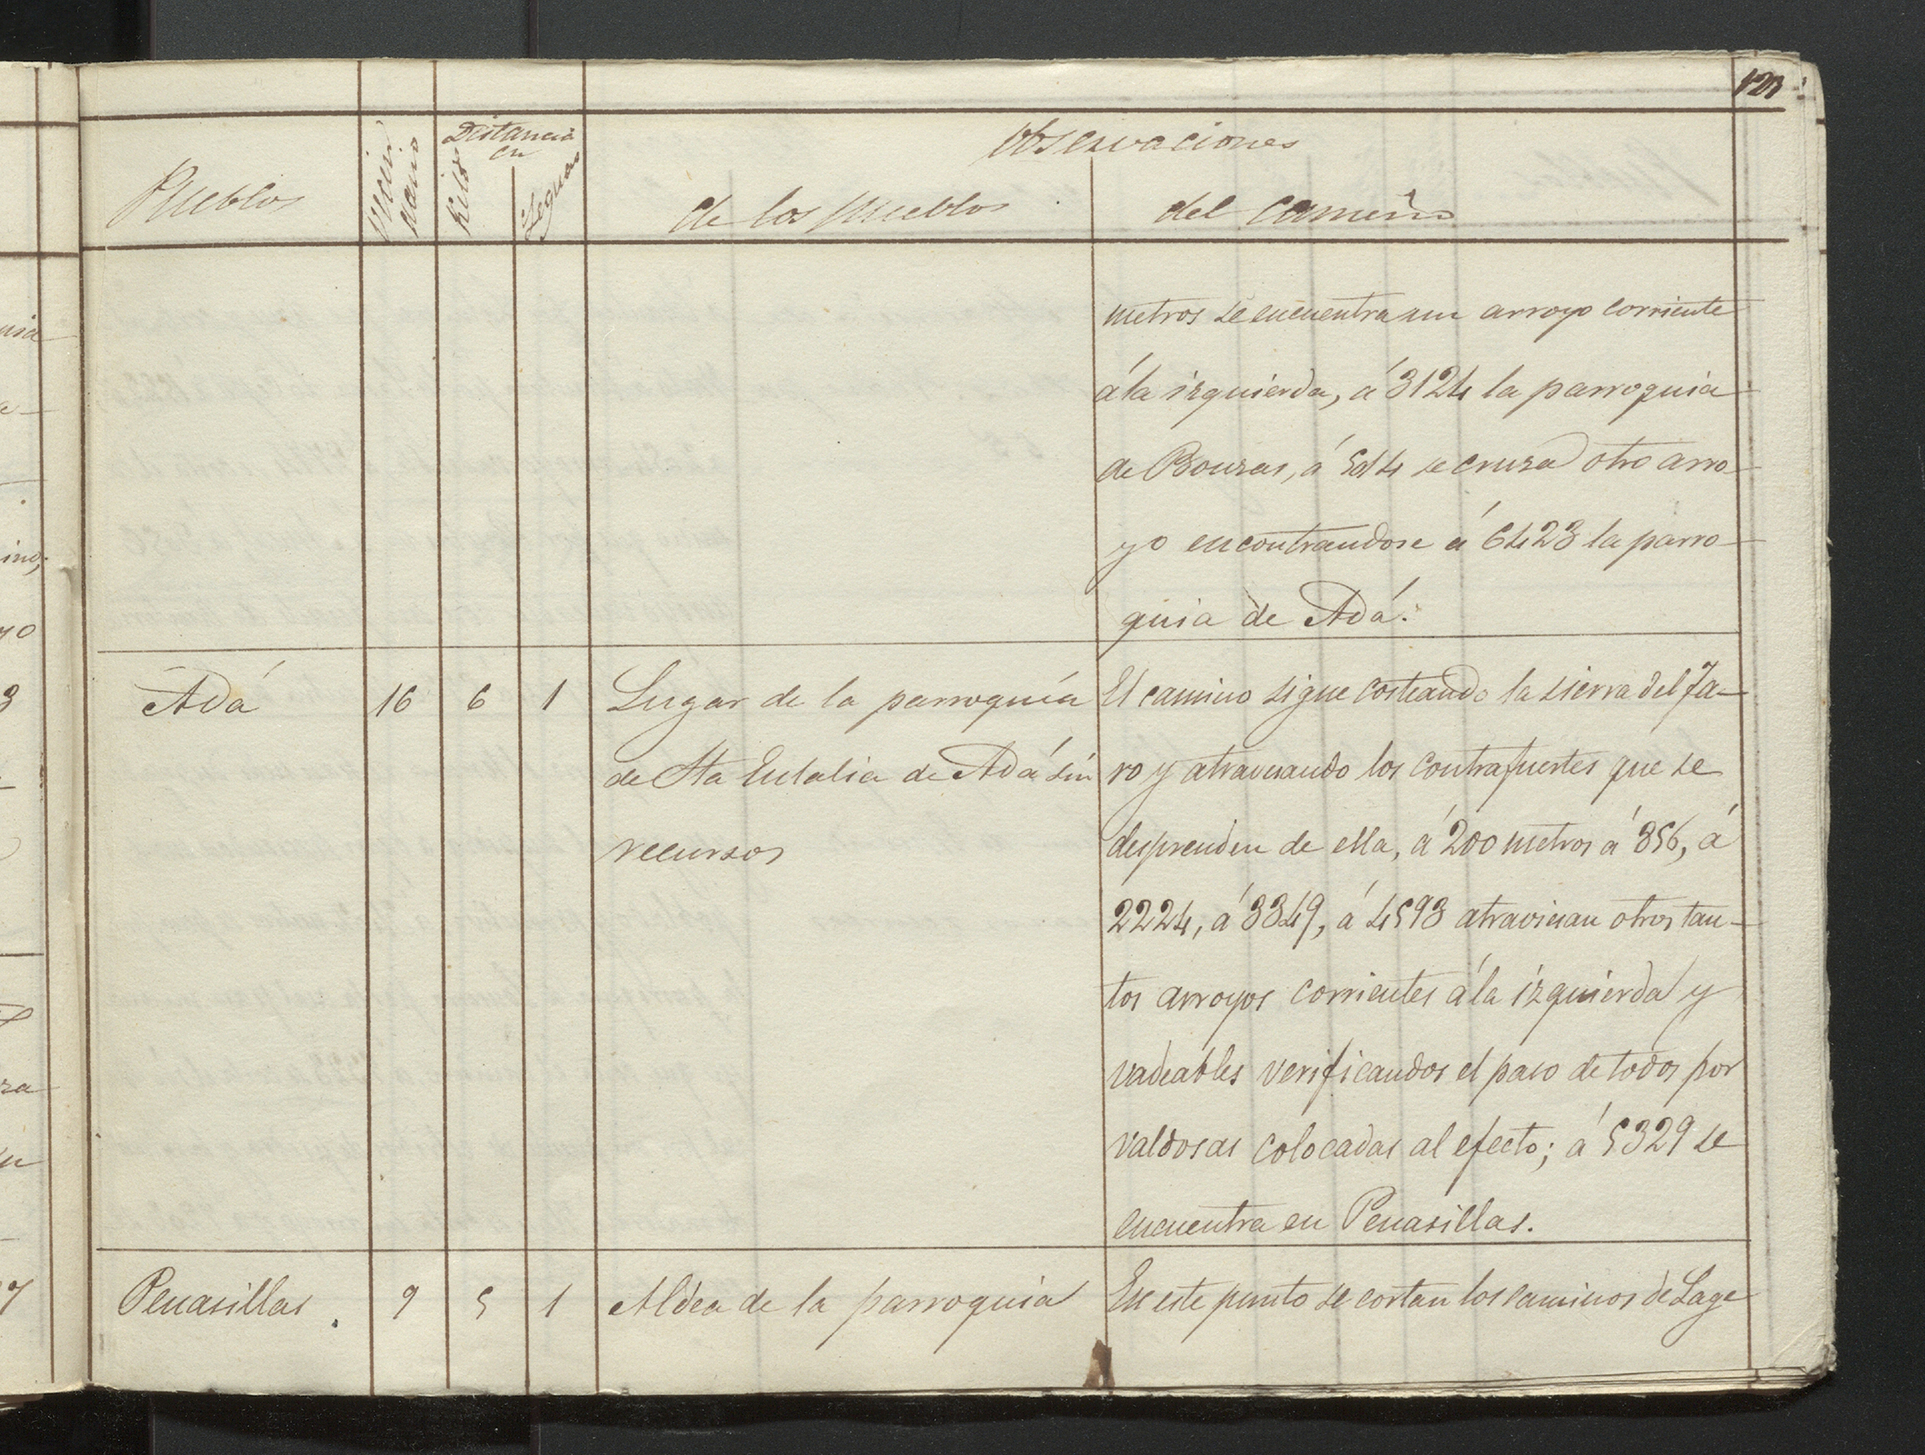 123
Pueblos
Vecin
dario
Distancia
en
Kilos
Leguas
Observaciones
de los pueblos
del camino
metros se encuentra un arroyo corriente
á la izquierda, á 3124 la parroquia
de Bouzas, á 5014 se cruza otro arro-
yo encontrandose á 6423 la parro-
quia de Adá.
Adá 16 6 1
Lugar de la parroquia
de Sta Eulalia de Adá sin
recursos
El camino sigue costeando la sierra del Fa-
ro y atravesando los contrafuertes que se
desprenden de ella, á 200 metros á 856, á
2224, á 3349, á 4593 atraviesan otros tan-
tos arroyos corrientes á la izquierda y
vadeables verificandos el paso de todos por
valdosas colocadas al efecto; á 5329 se
encuentra en Penasillas.
Penasillas. 9 5 1
Aldea de la parroquia
En este punto se cortan los caminos de Lage